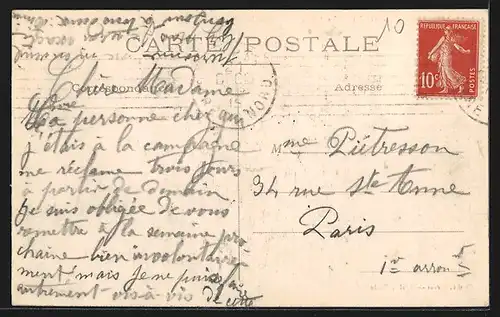 10
CARTE POSTALE
Correspondance
Adresse
RÉPUBLIQUE FRANÇAISE
10c
POSTES
Chère Madame
La personne chez qui
j'étais à la campagne
me réclame trois jours
à partir de demain
je suis obligée de vous
remettre à la semaine pro
chaine bien involontaire
ment mais je ne puis faire
autrement vis-à-vis de cette
Mme Piétresson
34 rue Ste Anne
Paris
1er arron